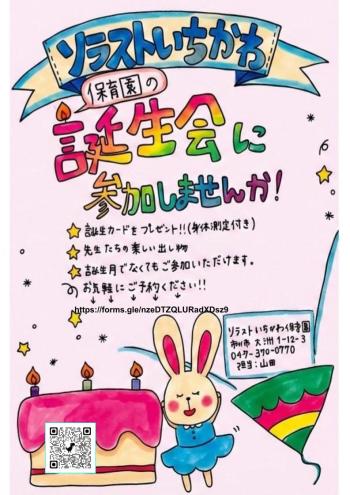 ソラストいちかわ
保育園の
誕生会に
参加しませんか!
誕生カードをプレゼント!!(身体測定付き)
先生たちの楽しい出し物
誕生月でなくてもご参加いただけます。
お気軽にご予約ください!!
https://forms.gle/nzeDTZQLURadXDsz9
ソラストいちかわ保育園
市川市大洲1-12-3
047-370-0770
担当:山田